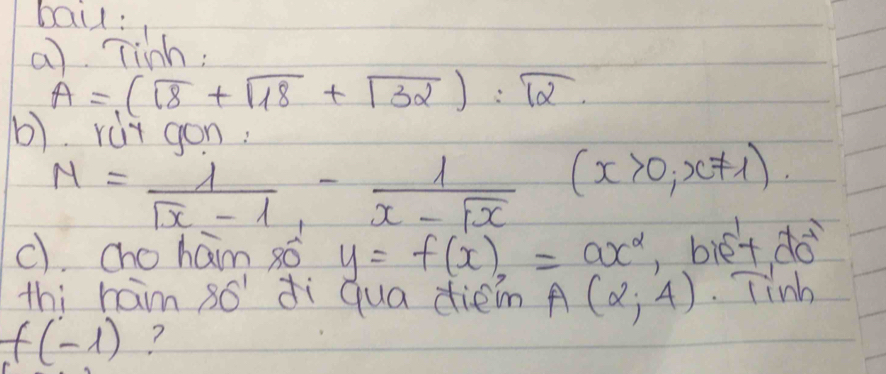 bài 1:
a). Tính:
A = (√8 + √18 + √32) : √2.
b). rút gọn:
N = 1/(√x - 1) - 1/(x - √x) (x>0; x≠1).
c). Cho hàm số y = f(x) = ax², biết đồ
thị hàm số đi qua điểm A (2; 4). Tính
f(-1) ?